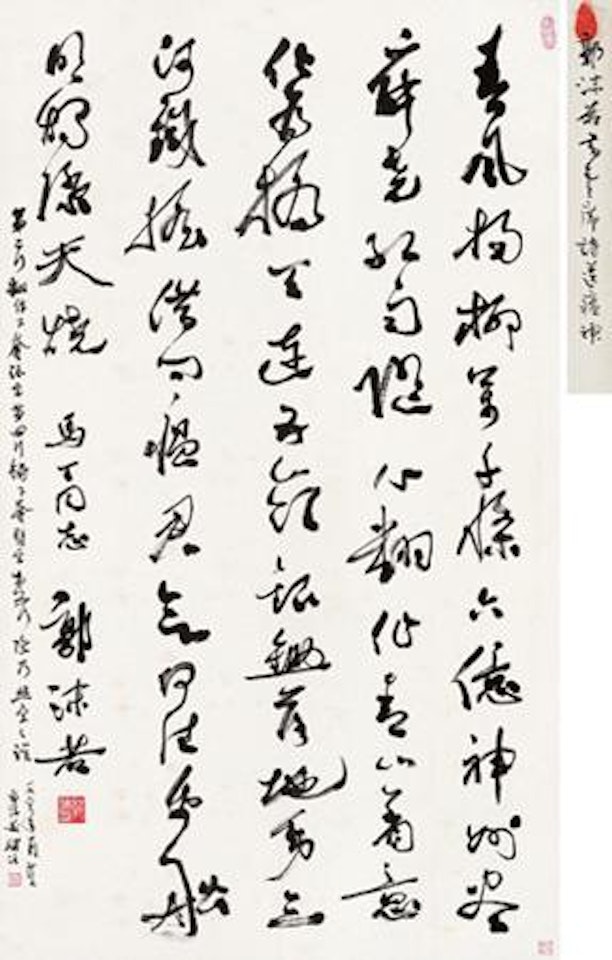 郭沫若书毛主席诗送瘟神
春风杨柳万千条六亿神州尽
舜尧红雨随心翻作青山着意
化为桥天连五岭银锄落地动三
河铁摇借问瘟君欲何往纸船
明烛照天烧 马丁同志 郭沫若
第二行翻作下夺浪字第四行铁下夺臂字